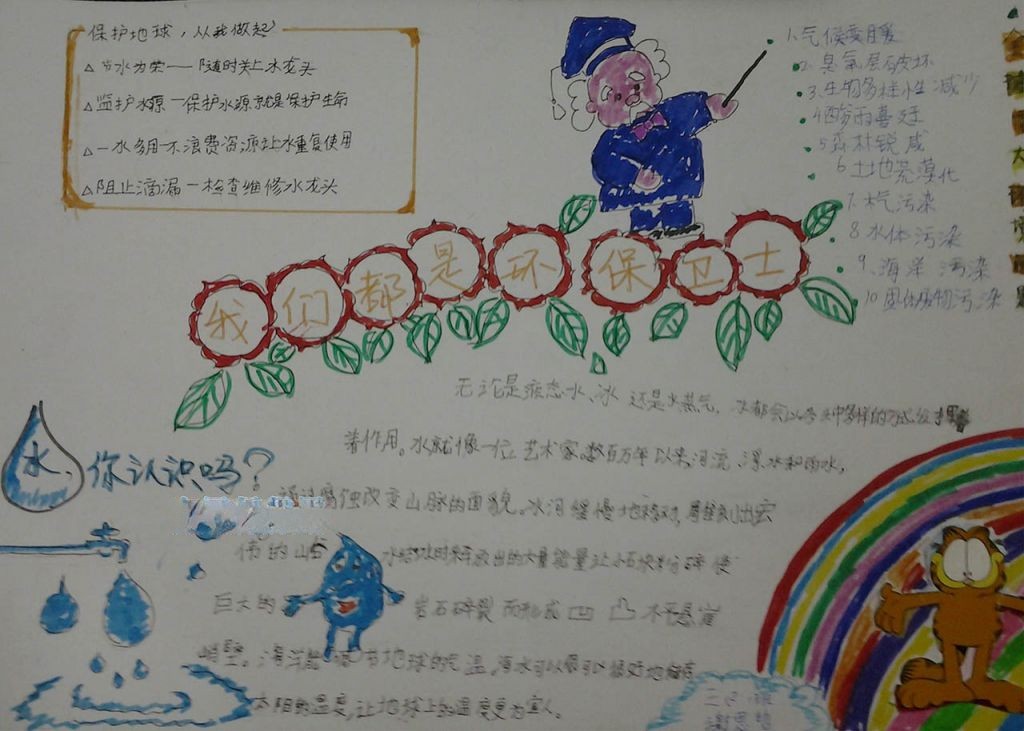 保护地球，从我做起
节水为荣——随时关上水龙头
监护水源—保护水源就是保护生命
一水多用—不浪费资源让水重复使用
阻止滴漏—检查维修水龙头
1.气候变暖
2.臭氧层破坏
3.生物多样性减少
4酸雨蔓延
5森林锐减
6土地荒漠化
7.大气污染
8水体污染
9.海洋污染
10固体废物污染
我们都是环保卫士
水，你认识吗？
无论是液态水、冰还是水蒸气，水都会以多种多样的方式发挥
着作用。水就像一位艺术家，数百万年以来，河流、潮水和雨水，
腐蚀改变山脉的面貌。冰河缓慢地移动，
伟的山谷 水结冰时释放出的大量能量让小石块 碎 使
巨大的 岩石碎裂而形成凹凸不平悬崖
峭壁。海洋能 节地球的气温，海水可以很 好地
太阳的温度，让地球上的温度更为宜人。